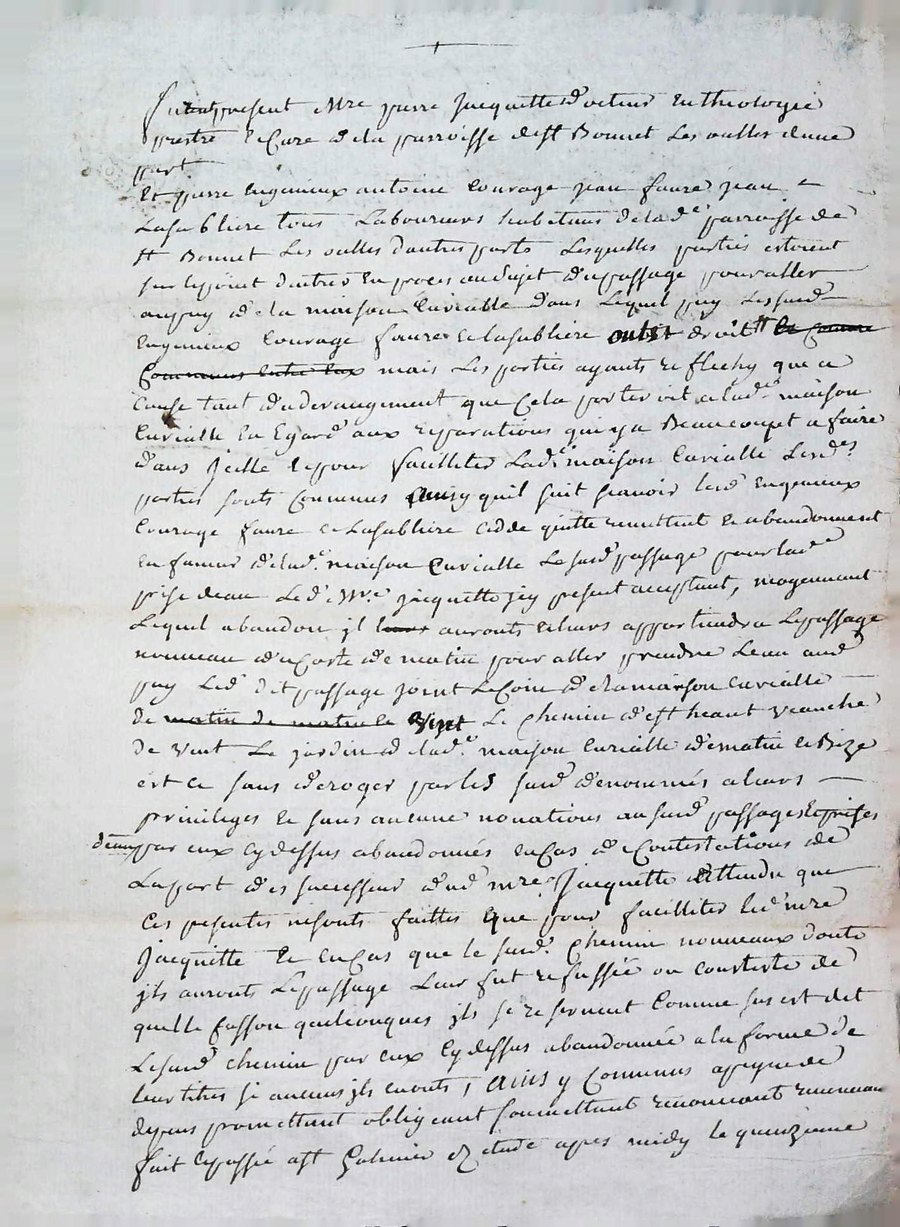 present Mre pierre Jacquette docteur en theologie
prestre et Cure de la parroisse de St Bonnet Les oulles d'une
part
Et pierre Engenieux antoine Courage jean faure jean
Lasabliere tous Laboureurs habitans de lade parroisse de
St Bonnet Les oulles d'autre parts Lesquelles parties estoient
sur le point d'entrer En proces au sujet d'u passage pour aller
au puy de la maison Curialle dans Lequel puy Les susd
Engenieux Courage faure et lasabliere ont droit
Communs entre eux mais Les parties ayants reflechy que a
Cause tant du derangement que Cela porteroit a lade maison
Curialle En Egard aux reparations qui y a Beaucoupt a faire
dans Jcelle et pour facilliter Lade maison Curialle Lesdes
parties sonts Convenus Ainsy quil suit scavoir lesd Engenieux
Courage faure et Lasabliere cedde quitte remettent et abandonnent
en faveur de lade maison Curialle Le susd passage pour lade
prise deau Led Mre Jacquette jcy present acceptant, moyennant
Lequel abandon jl auronts et leurs appartiendra Le passage
nouveau du Coste de matin pour aller prendre Leau aud
puy Led dit passage joint Le Coin de la maison Curialle
de matin de matin et vent Le chemin de St heant Veauche
de vent Le jardin de lade maison Curialle de matin et Bize
est ce sans deroger par les susd denommés a leurs
privileges Et sans aucune novations au susd passages et prises
deau par eux cy dessus abandonnés en Cas de Contestations de
La part des successeur dud mre Jacquette attendu que
Ces presentes ne sonts faittes que pour facilliter led mre
Jacquette Et en Cas que le susd chemin nouveaux donts
jls auronts Le passage Leur fut refussée ou contesté de
quelle fasson quelconques jls se reservent Comme sus est dit
Le susd chemin par eux Cy dessus abandonnée a la forme de
leur titres si aucuns jls en onts, Ainsy Convenus a peyne de
depens promettant obligeant soumettant renonceant
fait et passé a St Galmier Etude apres midy le quinzieme